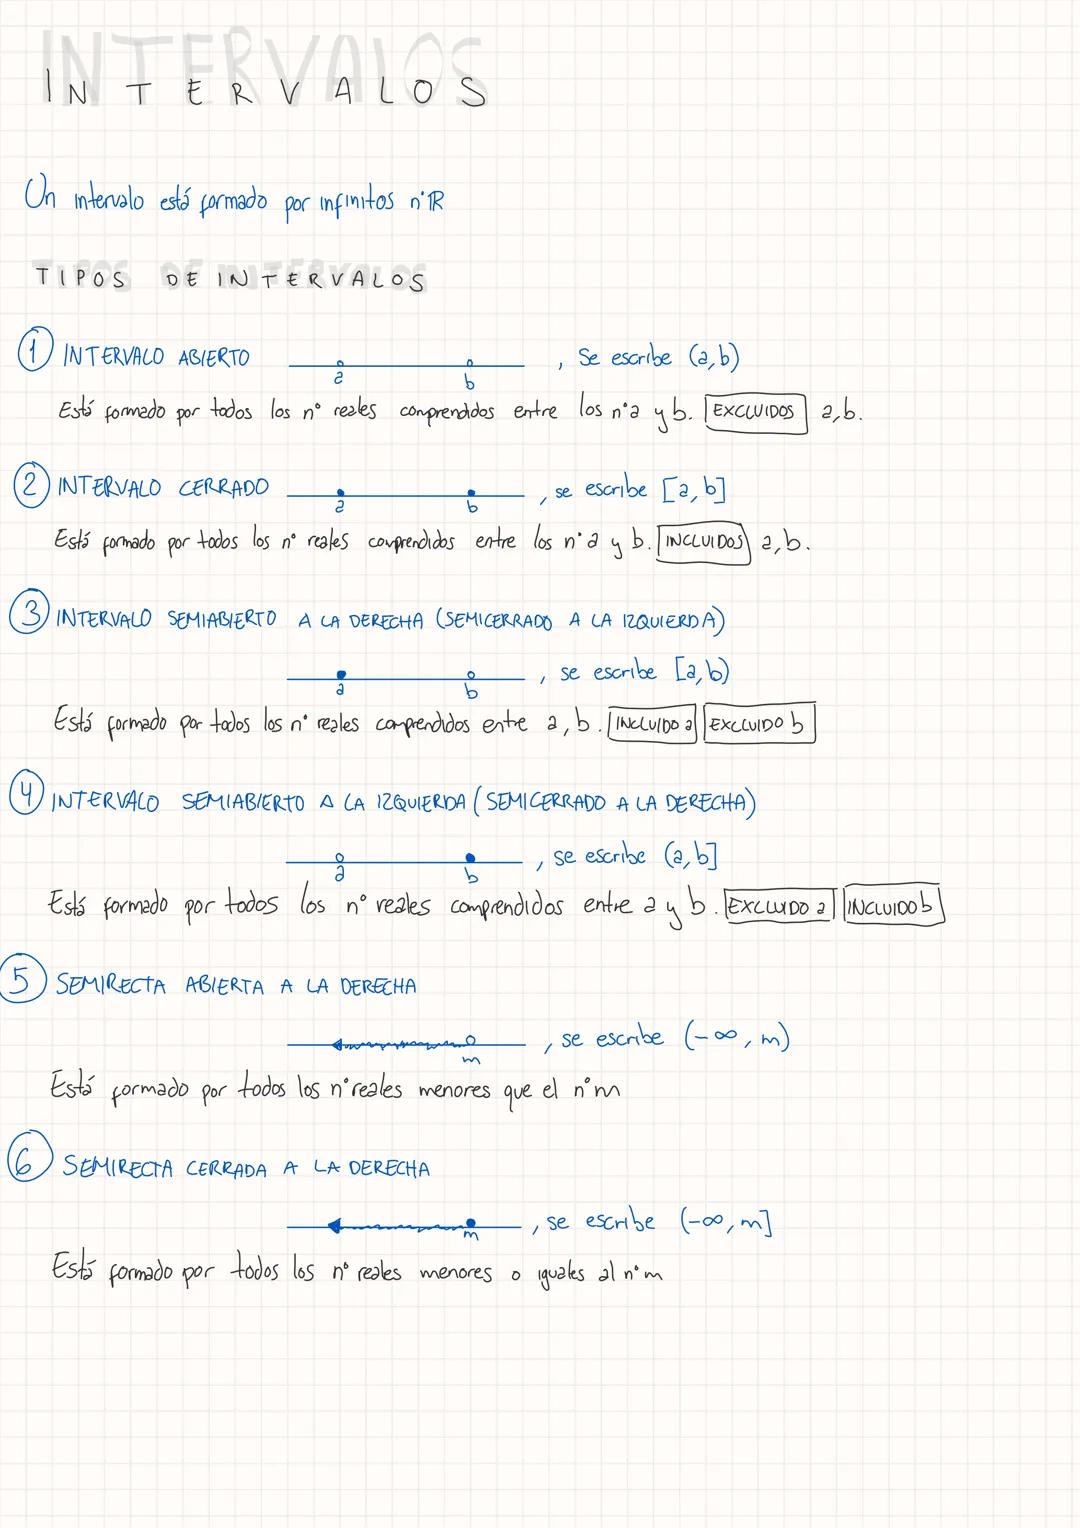 INTERVALOS
INTERVALOS
Un intervalo está formado por infinitos nº ℝ
TIPOS DE INTERVALOS
1 INTERVALO ABIERTO
a b , Se escribe (a,b)
Está formado por todos los nº reales comprendidos entre los nº a y b. EXCLUIDOS a,b.
2 INTERVALO CERRADO
a b , se escribe [a,b]
Está formado por todos los nº reales comprendidos entre los nº a y b. INCLUIDOS a,b.
3 INTERVALO SEMIABIERTO A LA DERECHA (SEMICERRADO A LA IZQUIERDA)
a b , se escribe [a,b)
Está formado por todos los nº reales comprendidos entre a, b. INCLUIDO a EXCLUIDO b
4 INTERVALO SEMIABIERTO A LA IZQUIERDA (SEMICERRADO A LA DERECHA)
a b , se escribe (a,b]
Está formado por todos los nº reales comprendidos entre a y b. EXCLUIDO a INCLUIDO b
5 SEMIRECTA ABIERTA A LA DERECHA
m , se escribe (-∞, m)
Está formado por todos los nº reales menores que el nº m
6 SEMIRECTA CERRADA A LA DERECHA
m , se escribe (-∞, m]
Está formado por todos los nº reales menores o iguales al nº m